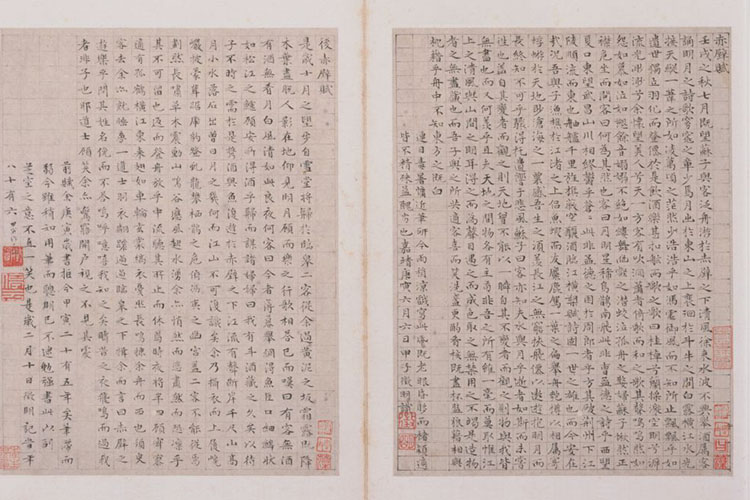 赤壁賦
壬戌之秋七月既望蘇子與客泛舟遊於赤壁之下清風徐來水波不興舉酒屬客
誦明月之詩歌窈窕之章少焉月出於東山之上裴徊於斗牛之間白露橫江水光
接天縱一葦之所如凌萬頃之茫然浩浩乎如馮虛御風而不知所止飄飄乎如
遺世獨立羽化而登僊於是飲酒樂甚扣舷而歌之歌曰桂棹兮蘭槳擊空明兮遡
流光渺渺兮余懷望美人兮天一方客有吹洞簫者倚歌而和之其聲嗚嗚然如
怨如慕如泣如訴餘音嫋嫋不絕如縷舞幽壑之潛蛟泣孤舟之嫠婦蘇子愀然正
襟危坐而問客曰何為其然也客曰月明星稀烏鵲南飛此非曹孟德之詩乎西望
夏口東望武昌山川相繆鬱乎蒼蒼此非孟德之困於周郎者乎方其破荊州下江
陵順流而東也舳艫千里旌旗蔽空釃酒臨江橫槊賦詩固一世之雄也而今安在
哉況吾與子漁樵於江渚之上侶魚蝦而友麋鹿駕一葉之扁舟舉匏樽以相屬寄
蜉蝣於天地渺滄海之一粟哀吾生之須臾羨長江之無窮挾飛僊以遨遊抱明月而
長終知不可乎驟得托遺響於悲風蘇子曰客亦知夫水與月乎逝者如斯而未嘗
往也蓋自其變者而觀之則天地曾不能以一瞬自其不變者而觀則物與我皆
無盡也而又何羨乎且夫天地之間物各有主苟非吾之所有雖一毫而莫取惟江
上之清風與山間之明月耳得之而為聲目遇之而成色取之無禁用之不竭是造物
者之無盡藏也而吾子與之所共適客喜而笑洗盞更酌肴核既盡杯盤狼籍相與
枕藉乎舟中不知東方之既白
連日毒暑近筆研今雨稍涼戲寫此既老眼昏而楮穎適
皆不精殊益醜惡也嘉靖庚寅六月六日甲子徵明識
後赤壁賦
是歲十月之望步自雪堂將歸於臨皋二客從余過黃泥之坂霜露既降
木葉盡脫人影在地仰見明月顧而樂之行歌相答已而嘆曰有客無酒
有酒無肴月白風清如此良夜何客曰今者薄暮舉網得魚巨口細鱗狀
如松江之鱸顧安所得酒乎歸而謀諸婦婦曰我有斗酒藏之久矣以待
子不時之需於是攜酒與魚復遊於赤壁之下江流有聲斷岸千尺山高
月小水落石出曾日月之幾何而江山不可復識矣余乃攝衣而上履巉
巖披蒙茸踞虎豹登虬龍攀栖鶻之危巢俯馮夷之幽宮蓋二客不能從焉
劃然長嘯草木震動山鳴谷應風起水湧余亦悄然而悲肅然而恐凜乎
其不可留也返而登舟放乎中流聽其所止而休焉時夜將半四顧寂寥
適有孤鶴橫江東來翅如車輪玄裳縞衣戛然長鳴掠余舟而西也須臾
客去余亦就睡夢一道士羽衣翩躚過臨皋之下揖余而言曰赤壁之
遊樂乎問其姓名俛而不答嗚呼噫嘻我知之矣疇昔之夜飛鳴而過我
者非子也耶道士顧笑余亦驚寤開戶視之不見其處
前賦余庚寅歲書抵今甲寅二十有五年矣筆滯而
弱今雖稍知用筆而聰明已不逮勉強書此以副
之意不直一笑也是歲二月十日徵明記時年
八十有六